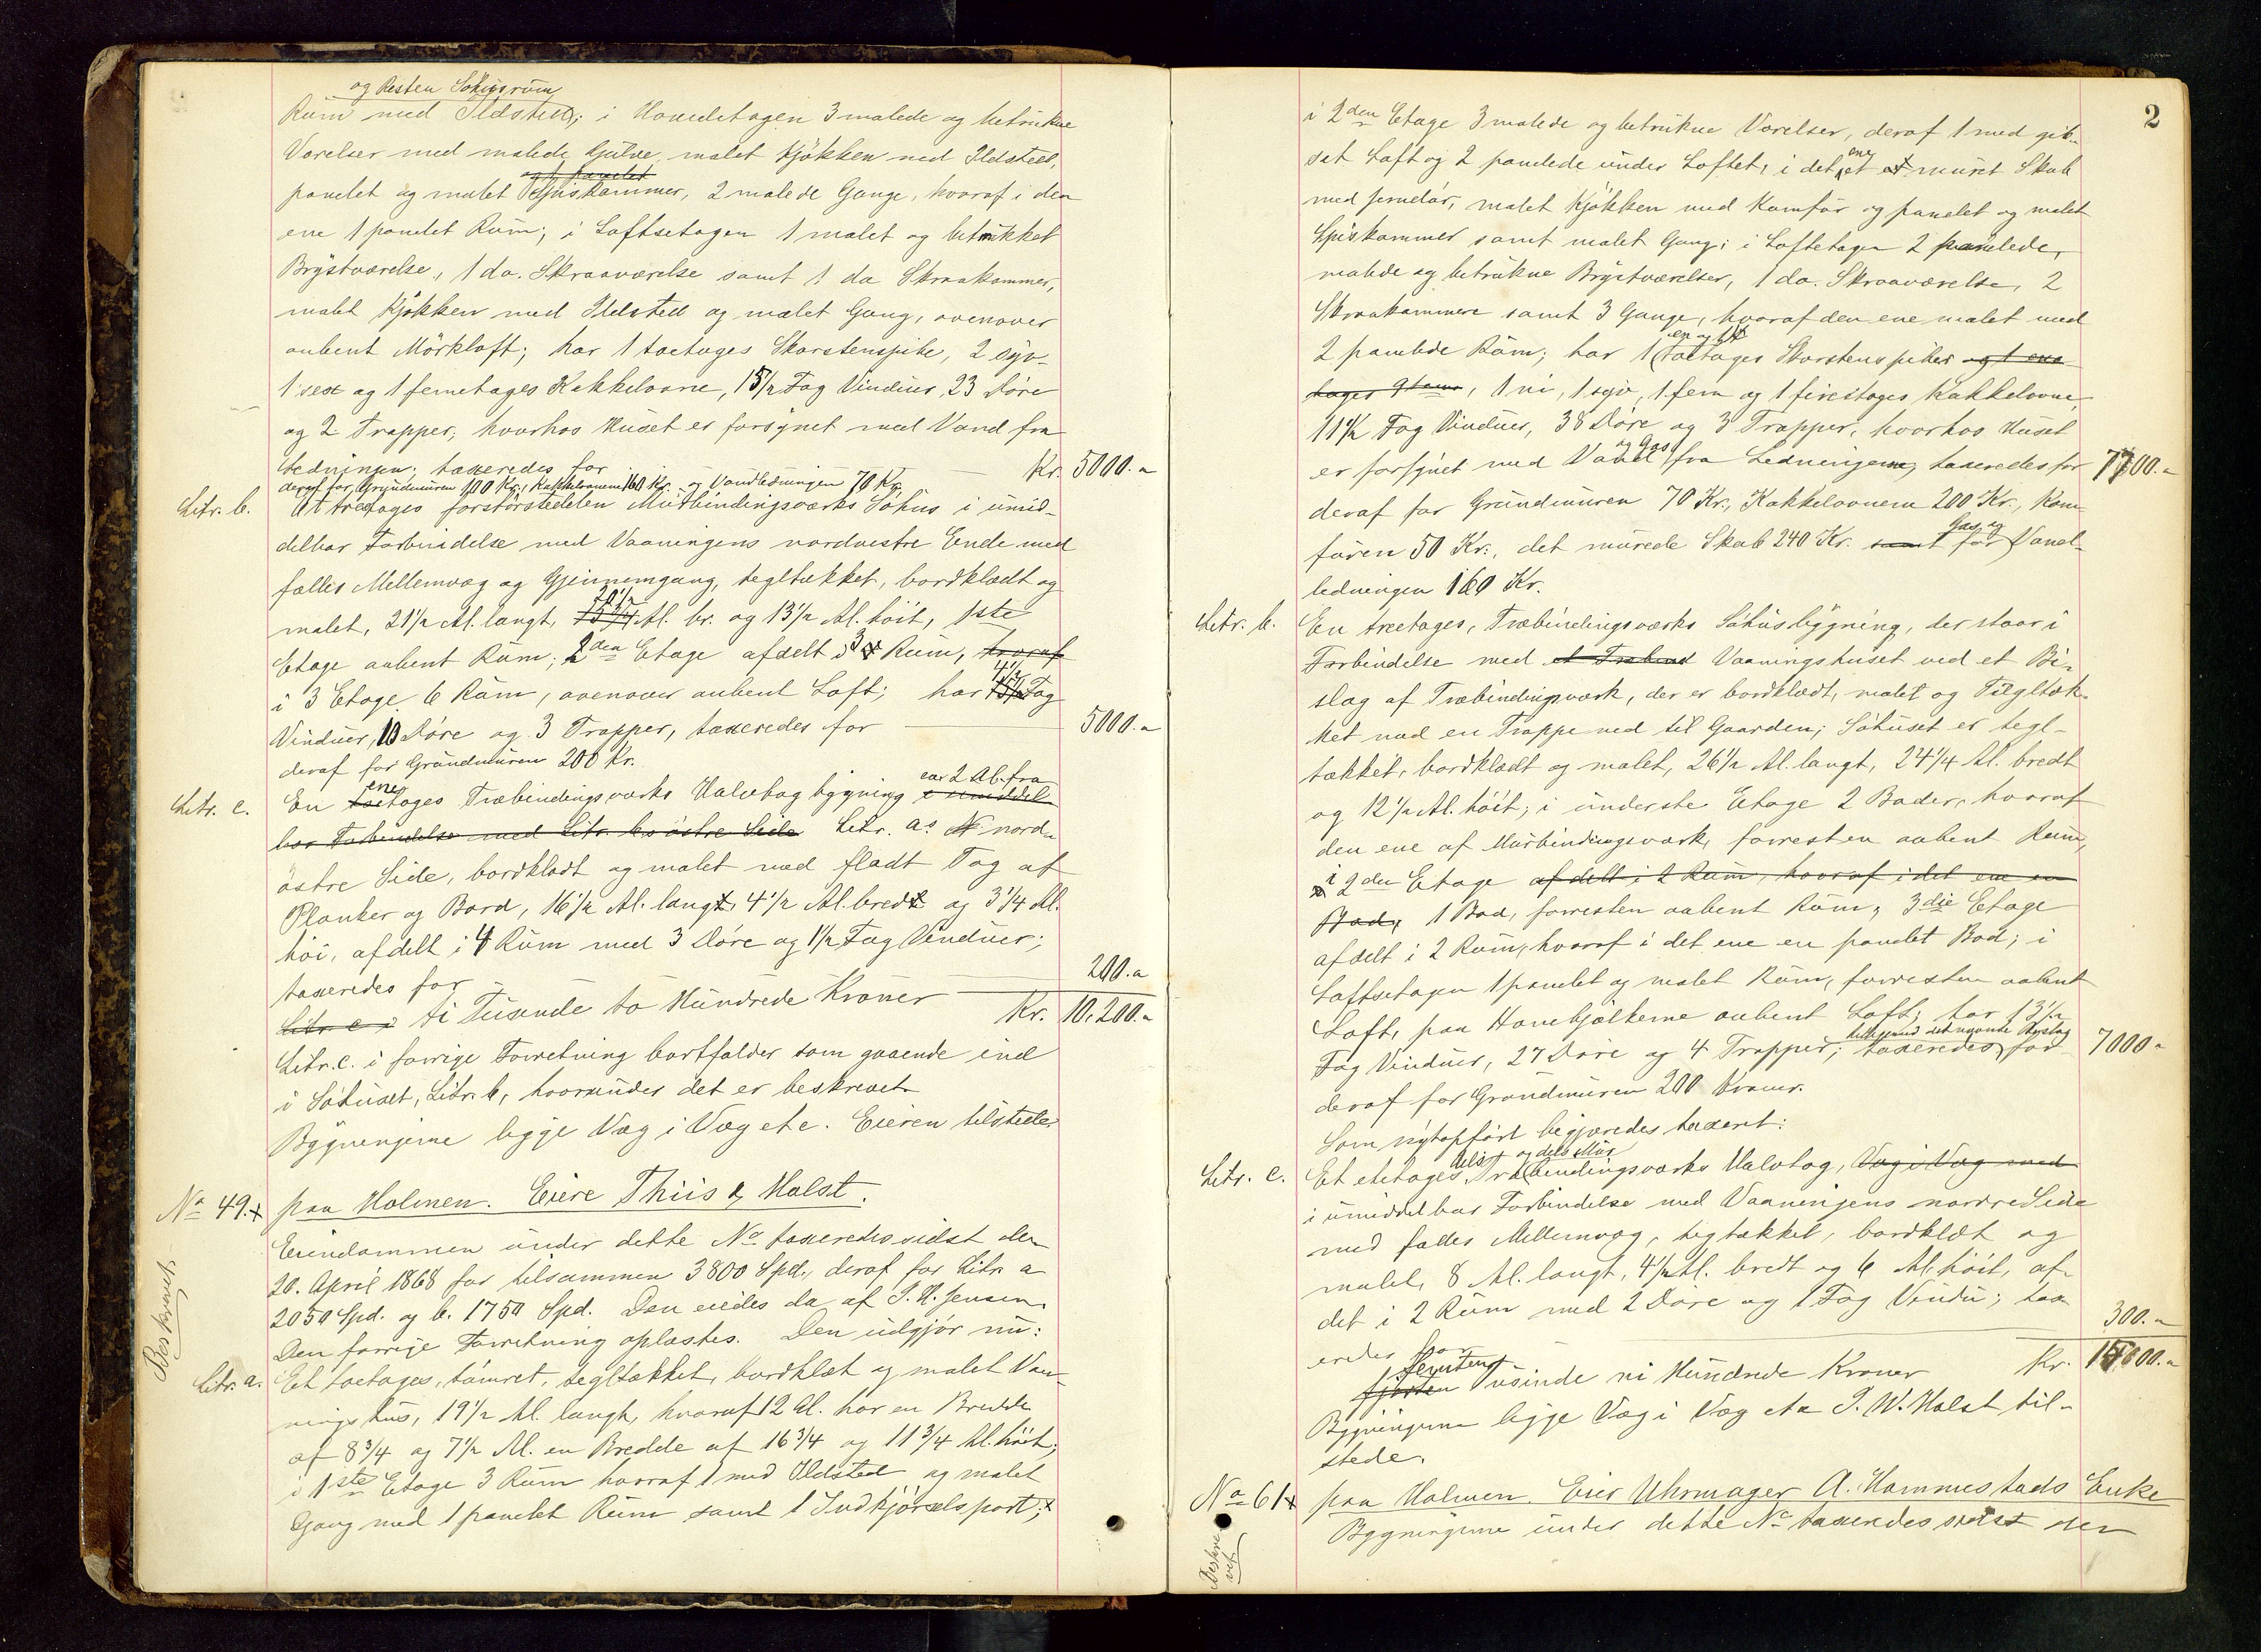 og Resten Søhusrum
Rum med Ildsted; i Hovedetagen 3 malede og betrukne
Værelser med malede Gulve, malet Kjøkken med Ildsted,
og 1 panelet
panelet og malet Spiskammer, 2 malede Gange, hvoraf i den
ene 1 panelet Rum; i Loftsetagen 1 malet og betrukket
Brystværelse, 1 do. Skraaværelse samt 1 do Skraakammer,
malet Kjøkken med Ildsted og malet Gang, ovenover
aabent Mørkloft; har 1 toetages Skorstenspibe, 2 syv-
1 sex og 1 femetages Kakkelovne, 15 1/2 Fag Vinduer, 23 Døre
og 2 Trapper, hvorhos Huset er forsynet med Vand fra
Ledningen; taxeredes for Kr. 5000.-
deraf for Grundmuren 100 Kr., Kakkelovnene 160 Kr. og Vandledningen 70 Kr.
Litr. b. Et treetages forstørstedelen Murbindingsværks Søhus i umid-
delbar Forbindelse med Vaaningens nordvestre Ende med
fælles Mellemvæg og Gjennemgang, tegltækket, bordklædt og
malet, 21 1/2 Al. langt, 15 3/4 20 1/2 Al. br. og 13 1/2 Al. høit, 1ste
Etage aabent Rum; 2den Etage afdelt i 3 Rum, hvoraf
i 3 Etage 6 Rum, ovenover aabent Loft; har 4 1/2 Fag
Vinduer, 10 Døre og 3 Trapper, taxeredes for 5000.-
deraf for Grundmuren 200 Kr.
Litr. c. En toetages ene Træbindingsværks Halvtag bygning i umiddel- ca 2 Al. fra
bar Forbindelse med Litr. b's østre Side Litr. a's nord-
østre Side, bordklædt og malet med fladt Tag af
Planker og Bord, 16 1/2 Al. lang, 4 1/2 Al. bred og 3 1/4 Al.
høi, afdelt i 4 Rum med 3 Døre og 1 1/2 Fag Vinduer;
taxeredes for 200.-
Litr. c i ti Tusende to Hundrede Kroner Kr. 10,200.-
Litr. c. i forrige Forretning bortfalder som gaaende ind
i Søhuset, Litr. b, hvorunder det er beskrevet
Bygningerne ligge Væg i Væg etc. Eieren tilstede
No 49. paa Holmen. Eiere Thiis & Holst.
Eiendommen under dette No taxeredes sidst den
20. April 1868 for tilsammen 3800 Spd., deraf for Litr. a
2050 Spd. og b. 1750 Spd. Den eiedes da af J. H. Jensen.
Den forrige Forretning oplæstes. Den udgjør nu:
Beskrevet.
Litr. a. Et toetages, tømret, tegltækket, bordklæt og malet Vaa-
ningshus, 19 1/2 Al. langt, hvoraf 12 Al. har en Bredde
af 8 3/4 og 7 1/2 Al. en Bredde af 16 3/4 og 11 3/4 Al. høit;
i 1ste Etage 3 Rum hvoraf 1 med Ildsted og malet
Gang med 1 panelet Rum samt 1 Indkjørselsport;
2
i 2den Etage 3 malede og betrukne Værelser, deraf 1 med gib-
set Loft og 2 panelede under Loftet, i det ene et muret Skab
med Jerndør, malet Kjøkken med Komfur og panelet og malet
Spiskammer samt malet Gang; i Loftetagen 2 panelede,
malede og betrukne Brystværelser, 1 do. Skraaværelse, 2
Skraakammere samt 3 Gange, hvoraf den ene malet med
2 panelede Rum; har 1 en og 1 toetages Skorstenspiber og 1 ene
tages, 1 ni, 1 syv, 1 fem og 1 firetages Kakkelovne,
11 1/2 Fag Vinduer, 38 Døre og 3 Trapper, hvorhos Huset
er forsynet med Vand og Gas fra Ledningerne, taxeredes for 7700.-
deraf for Grundmuren 70 Kr., Kakkelovnene 200 Kr., Kom-
furen 50 Kr., det murede Skab 240 Kr. samt for Gas og Vand-
ledningen 160 Kr.
Litr. b. En treetages, Træbindingsværks Søhusbygning, der staar i
Forbindelse med et Træbind Vaaningshuset ved et Bi-
slag af Træbindingsværk, der er bordklædt, malet og Tegltæk-
ket med en Trappe ned til Gaarden; Søhuset er tegl-
tækket, bordklædt og malet, 26 1/2 Al. langt, 24 1/4 Al. bredt
og 12 1/2 Al. høit; i underste Etage 2 Boder, hvoraf
den ene af Murbindingsværk, forresten aabent Rum,
i 2den Etage afdelt i 2 Rum, hvoraf i det ene en
Bod, 1 Bod, forresten aabent Rum, 3die Etage
afdelt i 2 Rum, hvoraf i det ene en panelet Bod; i
Loftsetagen 1 panelet og malet Rum, forresten aabent
Loft, paa Hanebjælkerne aabent Loft; har 13 1/2
Fag Vinduer, 27 Døre og 4 Trapper; taxeredes tilligemed det nævnte Bislag for 7000.-
deraf for Grundmuren 200 Kroner.
Som nyt opført begjæredes taxeret:
Litr. c. Et etetages, dels Træ og dels Mur bindingsværks Halvtag, Væg i Væg med
i umiddelbar Forbindelse med Vaaningens nordre Side
med fælles Mellemvæg, tegltækket, bordklæt og
malet, 8 Al. langt, 4 1/2 Al. bredt og 6 Al. høit, af-
delt i 2 Rum med 2 Døre og 1 Fag Vindu; tax-
eredes for 300.-
fjorten femten Tusinde ni Hundrede Kroner Kr. 15000.-
Bygningerne ligge Væg i Væg etc J. W. Holst til-
stede.
No 61 paa Holmen. Eier Uhrmager A. Hammestads Enke
Beskrevet
Bygningerne under dette No taxeredes sidst den